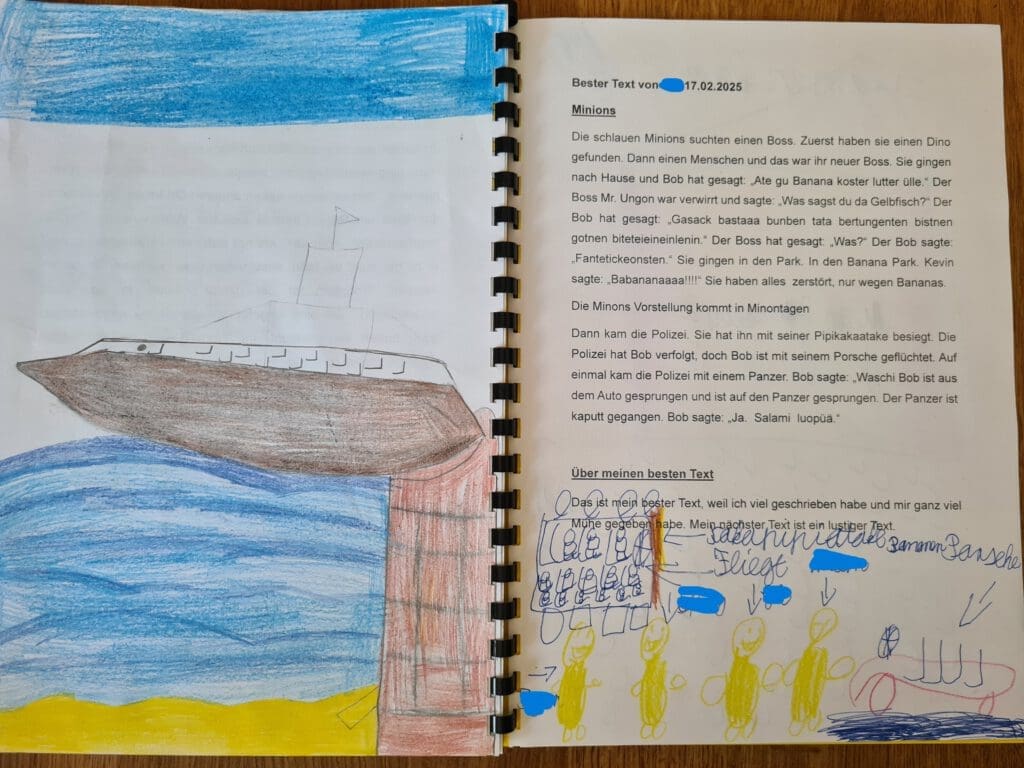 Bester Text von 17.02.2025
Minions
Die schlauen Minions suchten einen Boss. Zuerst haben sie einen Dino
gefunden. Dann einen Menschen und das war ihr neuer Boss. Sie gingen
nach Hause und Bob hat gesagt: „Ate gu Banana koster lutter ülle.“ Der
Boss Mr. Ungon war verwirrt und sagte: „Was sagst du da Gelbfisch?“ Der
Bob hat gesagt: „Gasack bastaaa bunben tata bertungenten bistnen
gotnen biteteieineinlenin.“ Der Boss hat gesagt: „Was?“ Der Bob sagte:
„Fantetickeonsten.“ Sie gingen in den Park. In den Banana Park. Kevin
sagte: „Babananaaaa!!!!“ Sie haben alles zerstört, nur wegen Bananas.
Die Minons Vorstellung kommt in Minontagen
Dann kam die Polizei. Sie hat ihn mit seiner Pipikakaatake besiegt. Die
Polizei hat Bob verfolgt, doch Bob ist mit seinem Porsche geflüchtet. Auf
einmal kam die Polizei mit einem Panzer. Bob sagte: „Waschi Bob ist aus
dem Auto gesprungen und ist auf den Panzer gesprungen. Der Panzer ist
kaputt gegangen. Bob sagte: „Ja. Salami luopüä.“
Über meinen besten Text
Das ist mein bester Text, weil ich viel geschrieben habe und mir ganz viel
Mühe gegeben habe. Mein nächster Text ist ein lustiger Text.
Fliegt